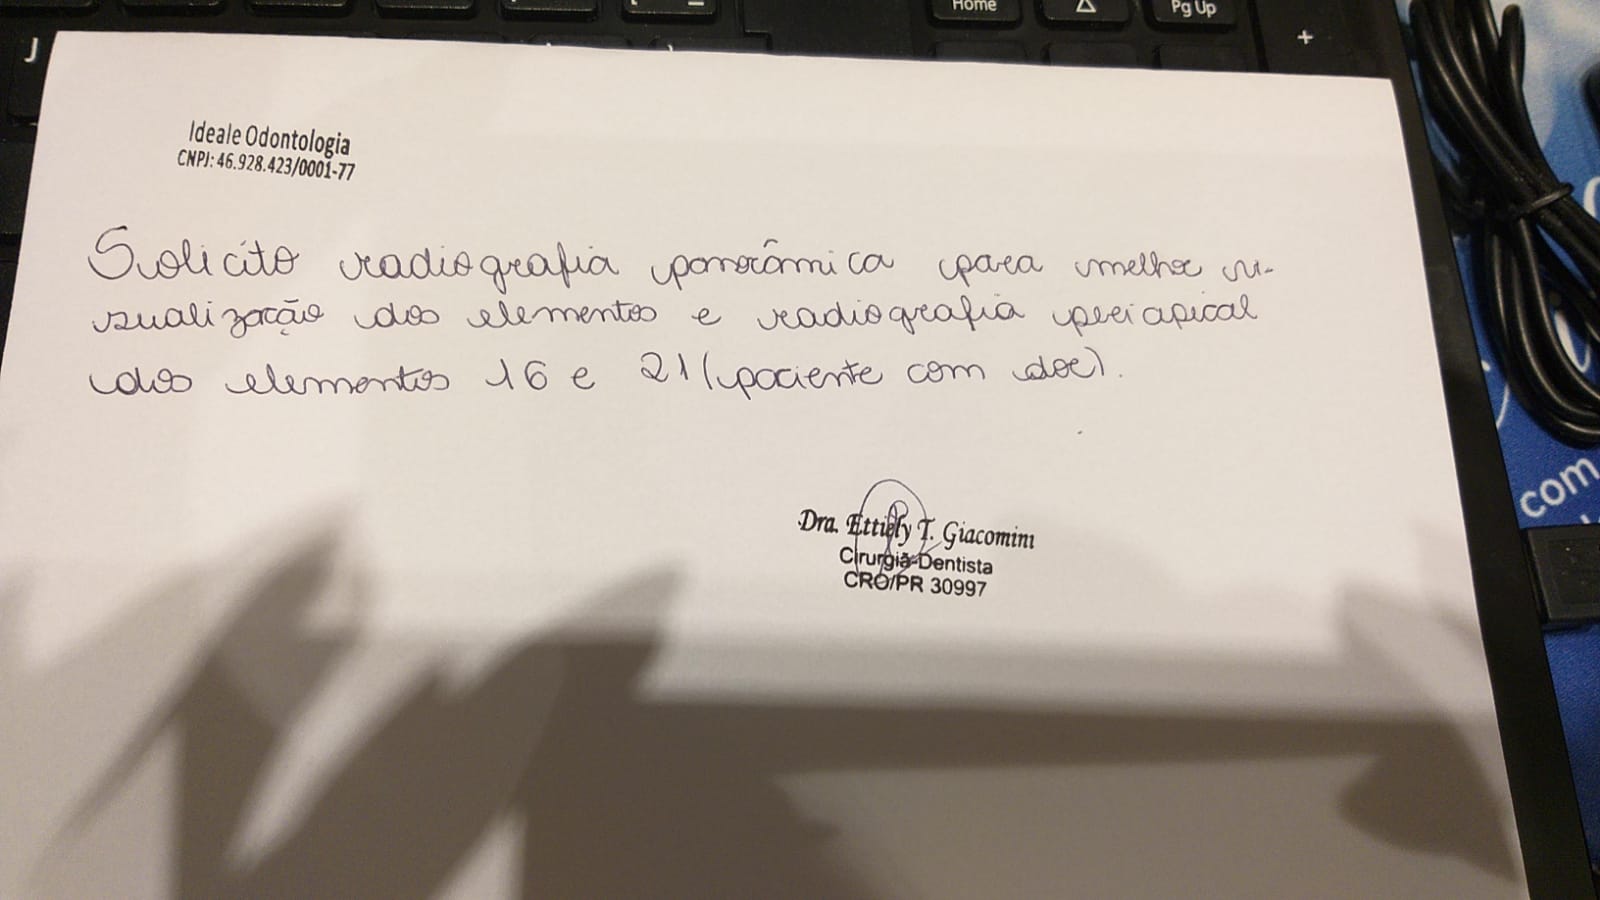 Home
Pg Up
J
+
Ideale Odontologia
CNPJ: 46.928.423/0001-77
Solicito radiografia panorâmica para melhor vi-
sualização dos elementos e radiografia periapical
dos elementos 16 e 21 (paciente com dor).
Dra. Ettiely T. Giacomini
Cirurgiã-Dentista
CRO/PR 30997
com